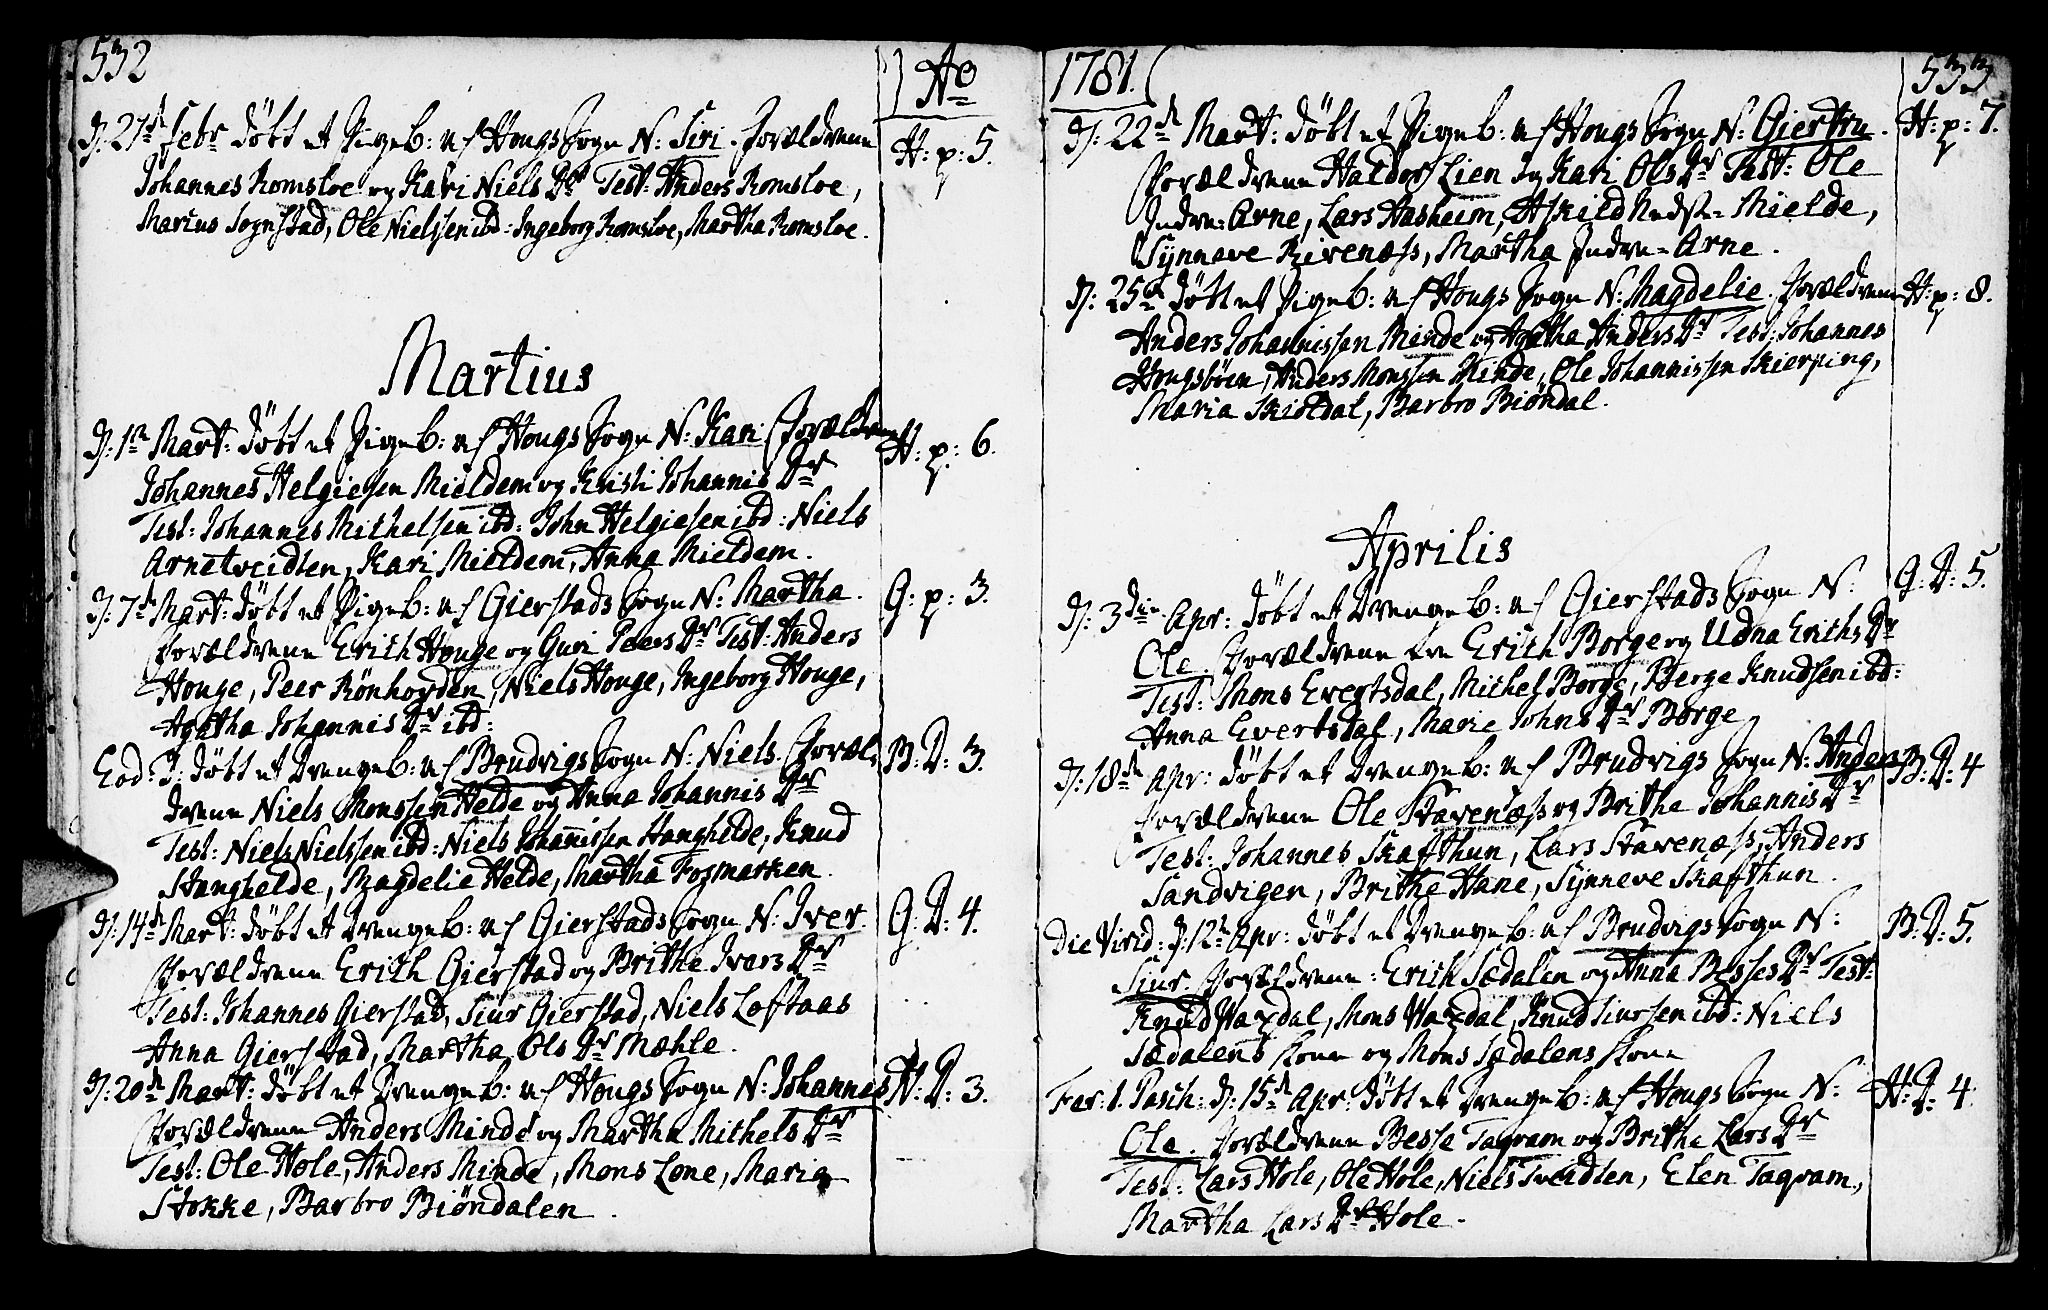 532
Ao
D: 27de Febr døbt et Pigeb: af Hougs Sogn N: Siri. Forældrene H: p: 5.
Johannes Romsloe og Kari Niels Dr Test: Anders Romsloe,
Marius Sognstad, Ole Nielssen ibd: Ingeborg Romsloe, Martha Romsloe.
Martius
D: 1te Mart: døbt et Pigeb: af Hougs Sogn N: Kari Forældrene H: p: 6.
Johannes Helgiesen Mieldem og Kristi Johannis Dr
Test: Johannes Michelsen ibd: John Helgiesen ibd: Niels
Arnetveidten, Kari Mieldem, Anna Mieldem.
D: 7de Mart: døbt et Pigeb: af Gierstads Sogn N: Martha. G: p: 3.
Forældrene Erich Houge og Guri Peers Dr Test: Anders
Houge, Peer Rönhovden, Niels Houge, Ingeborg Houge,
Agatha Johannis Dr ibd:
Eod: D: døbt et Drengeb: af Brudvigs Sogn N: Niels. Foræl- B: D: 3.
drene Niels Monssen Helde og Anna Johannis Dr
Test: Niels Nielssen ibd: Niels Johannissen Stanghelde, Knud
Stanghelde, Magdelie Helde, Martha Fosmarken.
D: 14de Mart: døbt et Drengeb: af Gierstads Sogn N: Iver. G: D: 4.
Forældrene Erich Gierstad og Brithe Ivers Dr
Test: Johannes Gierstad, Siur Gierstad, Niels Loftaas
Anna Gierstad, Martha Ols Dr Mæhle.
D: 20de Mart: døbt et Drengeb: af Hougs Sogn N: Johannes H: D: 3.
Forældrene Anders Minde og Martha Michels Dr
Test: Ole Hole, Anders Minde, Mons Lone, Maria
Stokke, Barbro Biöndalen.
1781.
533
D: 22de Mart: døbt et Pigeb: af Hougs Sogn N: Giertru. H: p: 7.
Forældrene Haldor Lien og Kari Ols Dr Test: Ole
Indre-Arne, Lars Aasheim, Askild Nedste-Mielde,
Synneve Rivenæss, Martha Indre-Arne.
D: 25de døbt et Pigeb: af Hougs Sogn N: Magdelie. Forældrene H: p: 8.
Anders Johannissen Minde og Agatha Anders Dr Test: Johannes
Hougsböen, Anders Monssen Minde, Ole Johannissen Skierping,
Maria Skioldal, Barbro Biöndal.
Aprilis
D: 3die Apr: døbt et Drengeb: af Gierstads Sogn N: G: D: 5.
Ole. Forældrene ere Erich Borge og Udna Erichs Dr
Test: Mons Evertsdal, Michel Borge, Berge Knudsen ibd:
Anna Evertsdal, Marie Johns Dr Borge
D: 18de Apr: døbt et Drengeb: af Brudvigs Sogn N: Anders B: D: 4
Forældrene Ole Stavenæss og Brithe Johannis Dr
Test: Johannes Skafthun, Lars Stavenæss, Anders
Sandvigen, Brithe Hane, Synneve Skafthun.
Die Virid: D: 12te Apr: døbt et Drengeb: af Brudvigs Sogn N: B: D: 5.
Siur. Forældrene: Erich Sædalen og Anna Besses Dr Test:
Knud Vaxdal, Mons Vaxdal, Knud Siursen ibd: Niels
Sædalens Kone og Mons Sædalens Kone
Fer: 1. Pasch: D: 15de Apr: døbt et Drengeb: af Hougs Sogn N: H: D: 4.
Ole. Forældrene Besse Taqvam og Britha Lars Dr
Test: Lars Hole, Ole Hole, Niels Tveidten, Elen Taqvam,
Martha Lars Dr Hole.